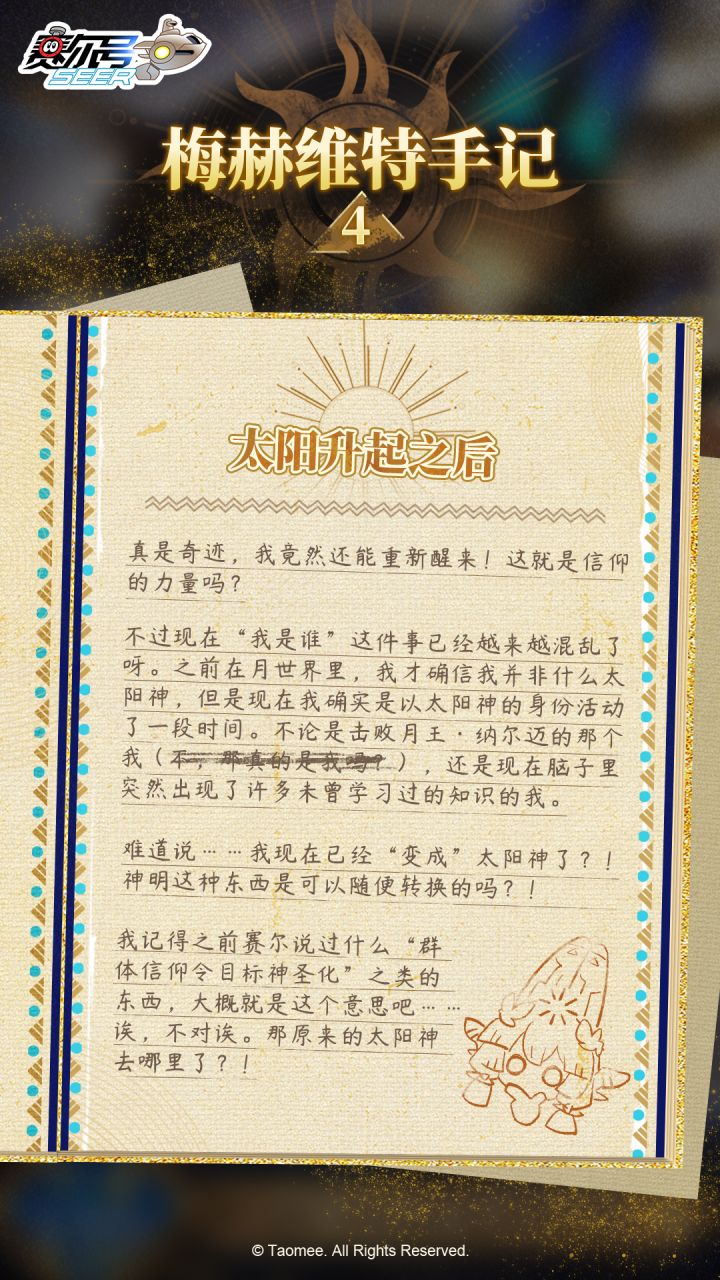 赛尔号
SEER
梅赫维特手记
4
太阳升起之后
真是奇迹，我竟然还能重新醒来！这就是信仰
的力量吗？
不过现在“我是谁”这件事已经越来越混乱了
呀。之前在月世界里，我才确信我并非什么太
阳神，但是现在我确实是以太阳神的身份活动
了一段时间。不论是击败月王·纳尔迈的那个
我（不，那真的是我吗？），还是现在脑子里
突然出现了许多未曾学习过的知识的我。
难道说……我现在已经“变成”太阳神了？！
神明这种东西是可以随便转换的吗？！
我记得之前赛尔说过什么“群
体信仰令目标神圣化”之类的
东西，大概就是这个意思吧……
诶，不对诶。那原来的太阳神
去哪里了？！
© Taomee. All Rights Reserved.